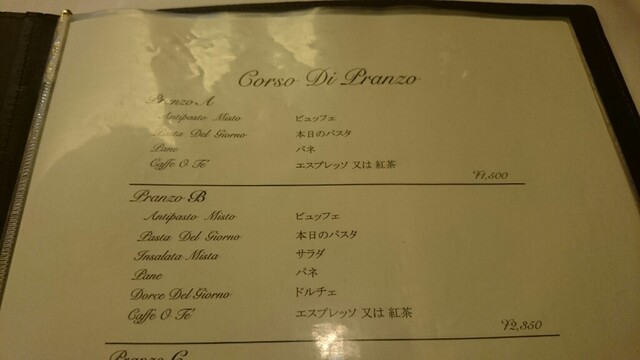 Corso Di Pranzo
Pranzo A
Antipasto Misto ビュッフェ
Pasta Del Giorno 本日のパスタ
Pane パネ
Caffe O Te' エスプレッソ 又は 紅茶
¥1,500
Pranzo B
Antipasto Misto ビュッフェ
Pasta Del Giorno 本日のパスタ
Insalata Mista サラダ
Pane パネ
Dorce Del Giorno ドルチェ
Caffe O Te' エスプレッソ 又は 紅茶
¥2,350
Pranzo C